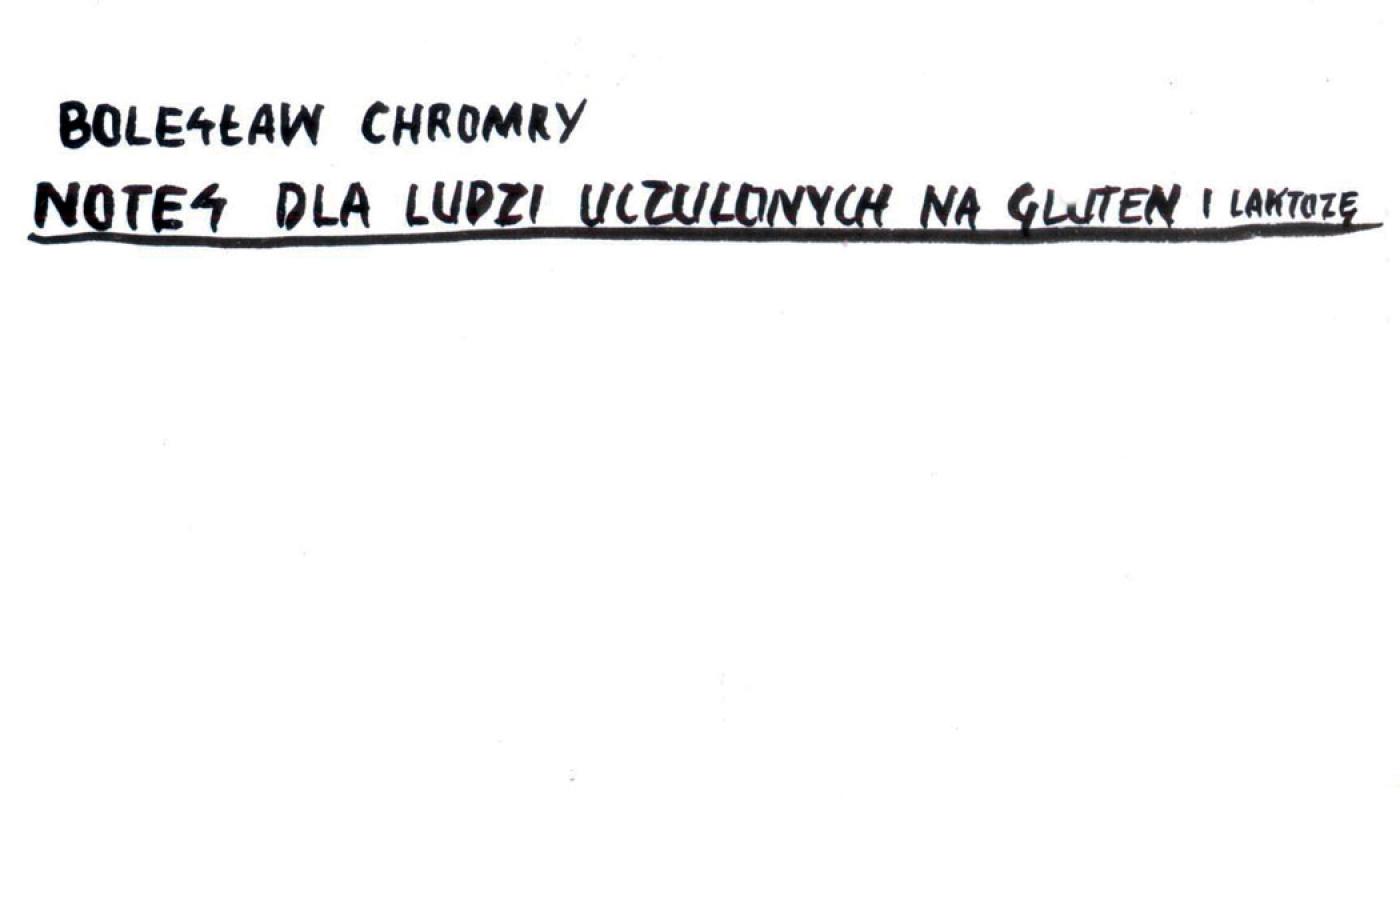 BOLESŁAW CHROMRY
NOTES DLA LUDZI UCZULONYCH NA GLUTEN I LAKTOZĘ